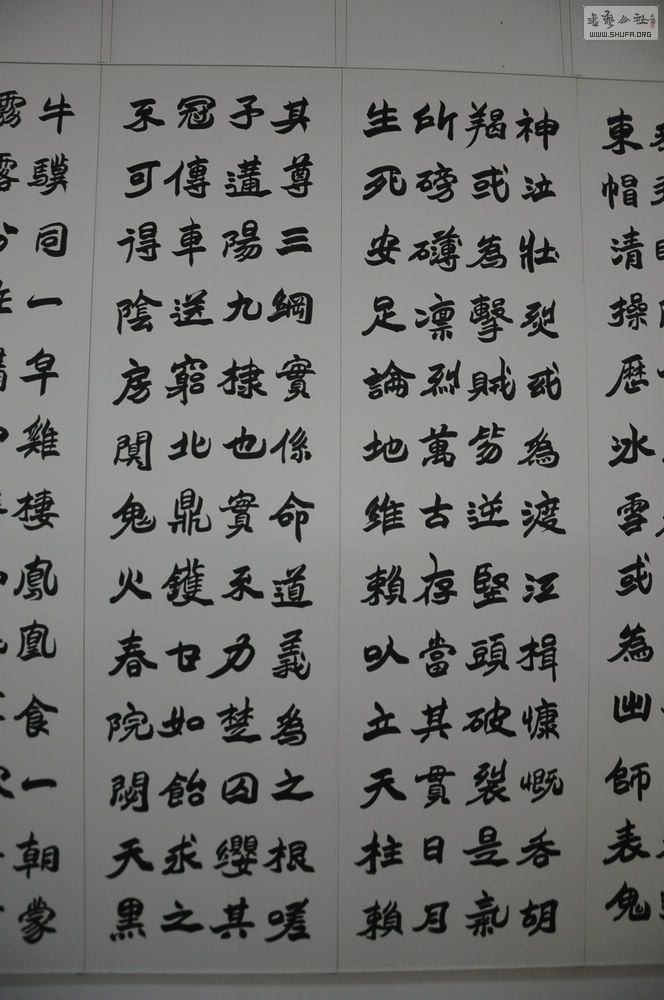 書藝公社
WWW.SHUFA.ORG
東帽清操歷冰雪或為出師表鬼
神泣壯烈或為渡江楫慷慨吞胡
羯或為擊賊笏逆豎頭破裂是氣
所磅礴凜烈萬古存當其貫日月
生死安足論地維賴以立天柱賴
其尊三綱實係命道義為之根嗟
予遘陽九隸也實不力楚囚纓其
冠傳車送窮北鼎鑊甘如飴求之
不可得陰房闃鬼火春院閟天黑
牛驥同一皁雞棲鳳凰食一朝蒙